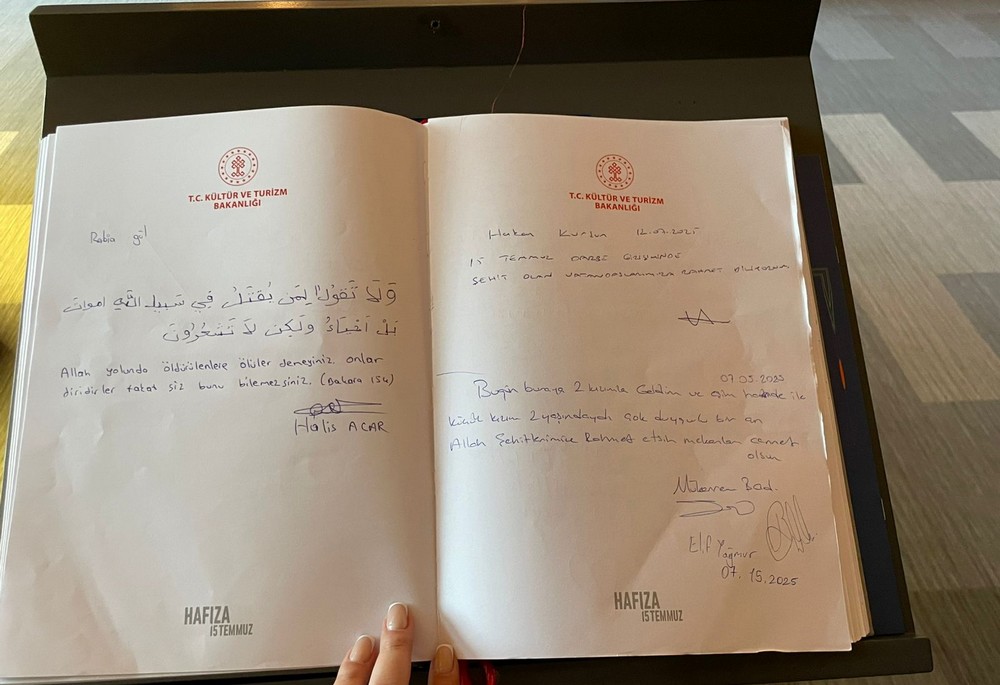 T.C. KÜLTÜR VE TURİZM
BAKANLIĞI
Rabia
وَلَا تَقُولُوا لِمَن يُقْتَلُ فِي سَبِيلِ اللَّهِ أَمْوَاتٌ
بَلْ أَحْيَاءٌ وَلَكِن لَا تَشْعُرُونَ
Allah yolunda öldürülenlere ölüler demeyiniz. onlar
diridirler fakat siz bunu bilemezsiniz. (Bakara 154)
Halis ACAR
HAFIZA
15 TEMMUZ
T.C. KÜLTÜR VE TURİZM
BAKANLIĞI
Hakan 12.07.2025
15 TEMMUZ DARBE GİRİŞİMİNDE
ŞEHİT OLAN VATANDAŞLARIMIZA RAHMET DİLİYORUM
07.05.2025
Bugün buraya 2 kızımla Geldim ve eşim ile
küçük kızım 2 yaşındaydı çok duygulu bir an
Allah Şehitlerimize Rahmet etsin mekanları cennet
olsun
Elif Yağmur
07.15.2025
HAFIZA
15 TEMMUZ